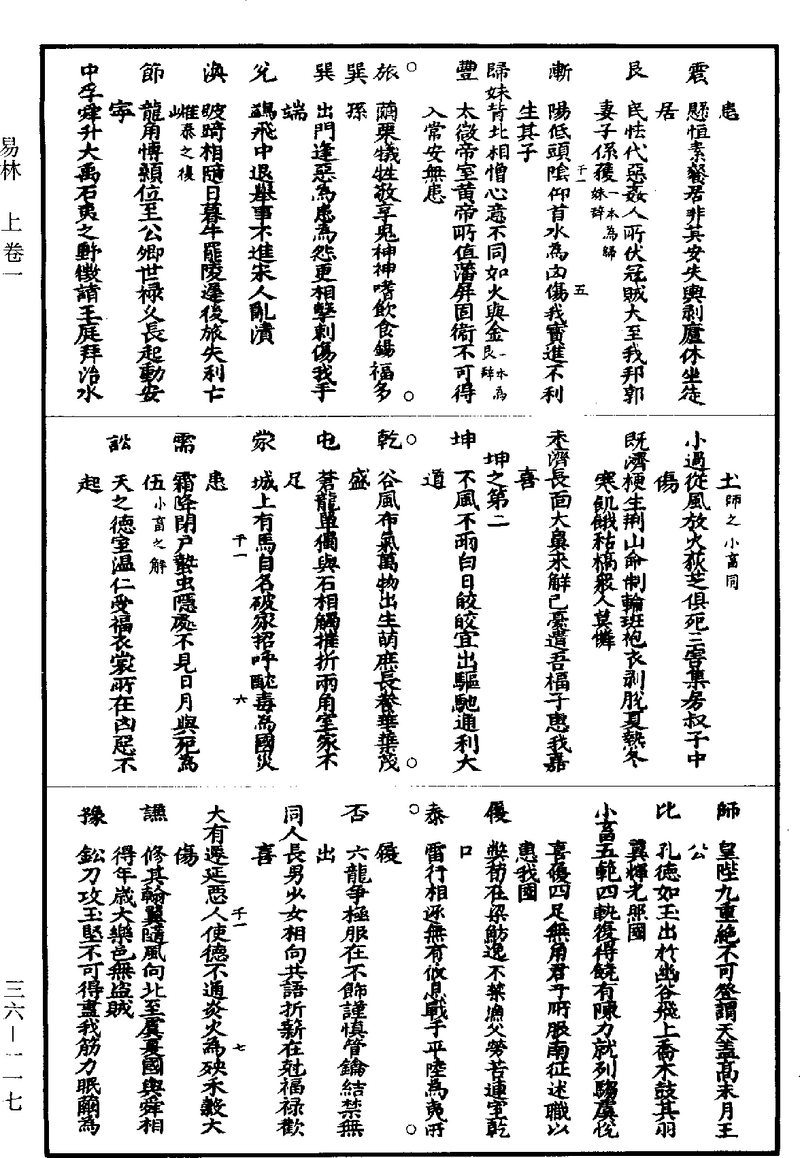 患
震　懸恒素餐居非其安失輿剥廬休坐徒
居
艮　民怯代惡姦人所伏冦賊大至我邦郭
妻子係獲一本為歸妹辞
漸　陽低頭陰仰首水為凶傷我寳進不利
生其子
歸妹背北相憎心意不同如火與金一本為艮辞
豐　太微帝室黄帝所值藩屏固衛不可得
入常安無患
旅　繭栗犠牲敬享鬼神神嗜飲食錫福多
孫
巽　出門逢惡為患為怨更相擊刺傷我手
端
兊　鷁飛中退舉事不進宋人亂潰
渙　跛踦相隨日暮牛罷陵遲後旅失利亡
雌泰之復
節　龍角博顙位至公卿世禄乆長起動安
寧
中孚舜升大禹石夷之野徴詣王庭拜治水
土師之小畜同
小過從風放火荻芝俱死三害集房叔子中
傷
既濟梗生荆山命制輸班袍衣剥脱夏熱冬
寒飢餓枯槁衆人莫憐
未濟長面大鼻来解己憂遺吾福子惠我嘉
喜
坤之第二
坤　不風不雨白日皎皎宜出驅馳通利大
道
乾　谷風布氣萬物出生萌庶長養華葉茂
盛
屯　蒼龍單獨與石相觸摧折兩角室家不
足
蒙　城上有烏自名破家招呼酖毒為國災
患
需　霜降閉户蟄虫隱處不見日月與死為
伍小畜之解
訟　天之德室温仁受福衣裳所在凶惡不
起
師　皇陛九重絶不可登謂天蓋髙未月王
公
比　孔德如玉出於幽谷飛上喬木鼓其羽
翼輝光照國
小畜五範四軌復得饒有陳力就列騶虞悦
喜
履　四足無角君子所服南征述職以
惠我國
履　敝笱在梁魴逸不禁漁父勞苦連室乾
口
泰　雷行相逐無有攸息戰于平陸為夷所
覆
否　六龍争極服在不飾謹慎管鑰結禁無
出
同人長男少女相向共語折薪在尅福禄歡
喜
大有遲延惡人使德不通炎火為殃禾榖大
傷
謙　修其翰翼隨風向北至虞夏國與舜相
得年歳大樂邑無盗賊
豫　鈆刀攻玉堅不可得盡我筋力眠繭為
易林　上卷一
三六－一一七